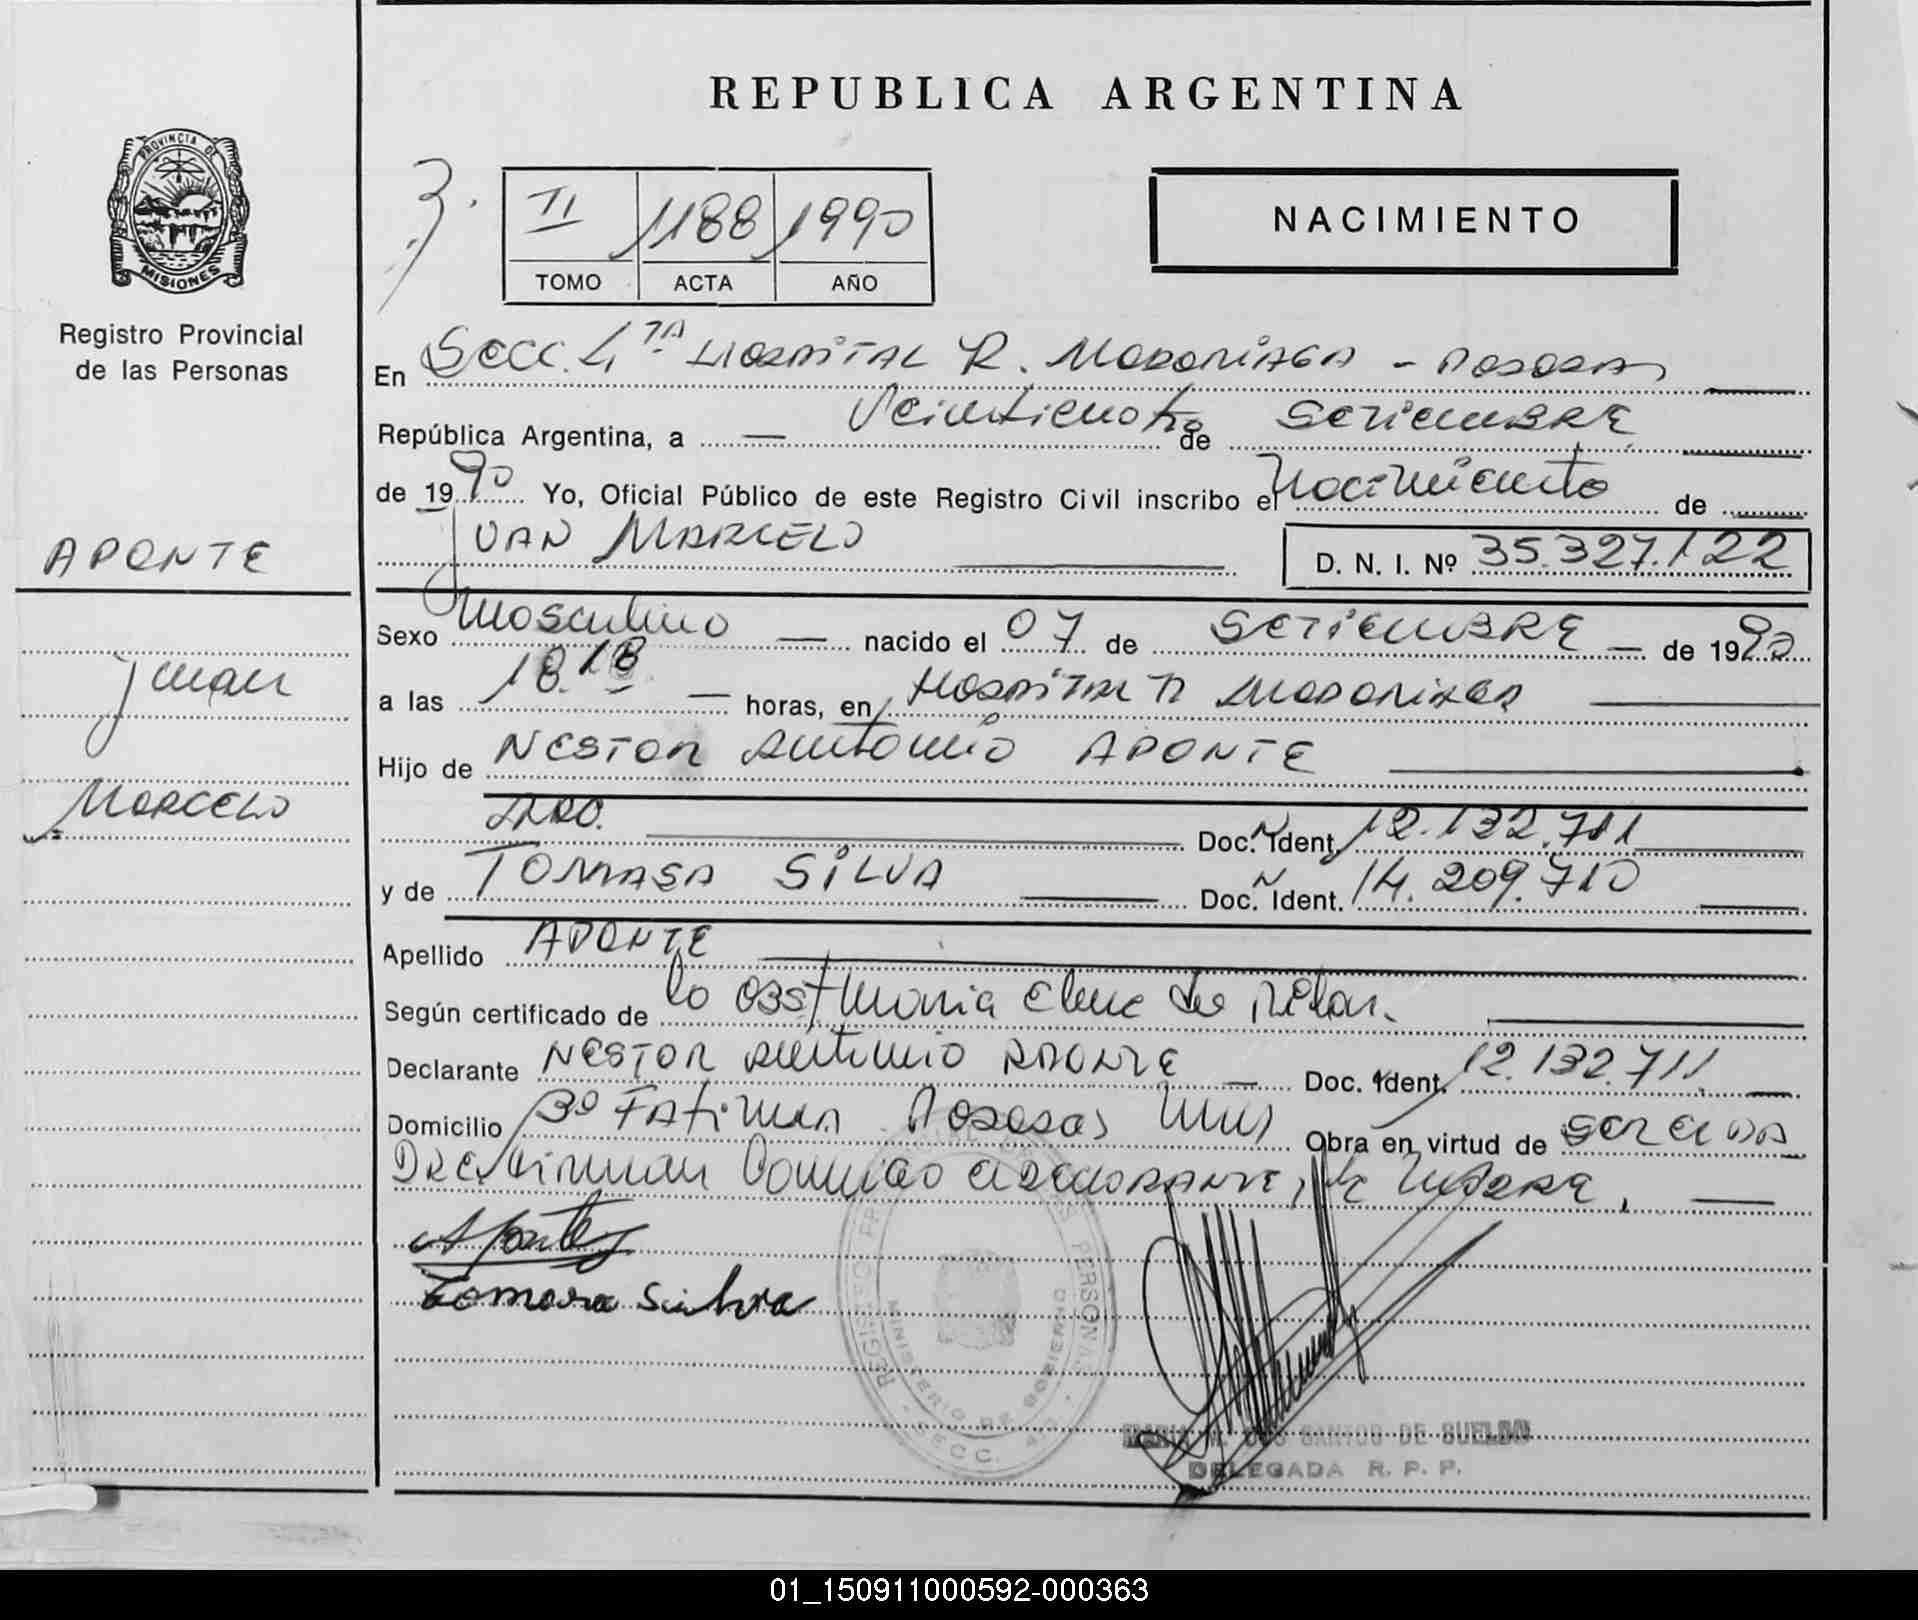 REPUBLICA ARGENTINA
PROVINCIA DE
MISIONES
Registro Provincial
de las Personas
3.
II 1188 1990
TOMO ACTA AÑO
NACIMIENTO
En Secc. 4TA Hospital R. Madariaga - Posadas
República Argentina, a — Veintiocho de SETIEMBRE
de 1990 Yo, Oficial Público de este Registro Civil inscribo el Nacimiento de
JUAN MARCELO D. N. I. Nº 35.327.122
APONTE
Juan
Marcelo
Sexo masculino — nacido el 07 de SETIEMBRE — de 1990
a las 18.18 — horas, en Hospital R Madariaga
Hijo de NESTOR Antonio APONTE
Doc. N Ident. 12.132.711
y de TOMASA SILVA Doc. N Ident. 14.209.710
Apellido APONTE
Según certificado de la Obst Maria Elena de
Declarante NESTOR Antonio APONTE — Doc. Ident. 12.132.711
Domicilio Bº FATiMA Posadas Mnes Obra en virtud de
firman conmigo el declarante, la MADRE,
Aponte
Tomasa Silva
REGISTRO PROVINCIAL DE LAS PERSONAS
MINISTERIO DE GOBIERNO
SECC. 4ta
DOS SANTOS DE SUELDO
DELEGADA R. P. P.
01_150911000592-000363